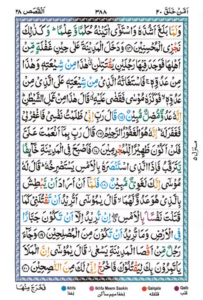 اَمَّنْ خَلَقَ ٢٠ ٣٨٨ القصص ٢٨
وَلَمَّا بَلَغَ اَشُدَّهٗ وَاسْتَوٰٓى اٰتَيْنٰهُ حُكْمًا وَّعِلْمًا ؕ وَكَذٰلِكَ
نَجْزِى الْمُحْسِنِيْنَ وَدَخَلَ الْمَدِيْنَةَ عَلٰى حِيْنِ غَفْلَةٍ مِّنْ
اَهْلِهَا فَوَجَدَ فِيْهَا رَجُلَيْنِ يَقْتَتِلٰنِ هٰذَا مِنْ شِيْعَتِهٖ وَهٰذَا
مِنْ عَدُوِّهٖ ۚ فَاسْتَغَاثَهُ الَّذِىْ مِنْ شِيْعَتِهٖ عَلَى الَّذِىْ
مِنْ عَدُوِّهٖ ۙ فَوَكَزَهٗ مُوْسٰى فَقَضٰى عَلَيْهِ قَالَ هٰذَا مِنْ عَمَلِ الشَّيْطٰنِ
اِنَّهٗ عَدُوٌّ مُّضِلٌّ مُّبِيْنٌ قَالَ رَبِّ اِنِّىْ ظَلَمْتُ نَفْسِىْ فَاغْفِرْلِىْ
فَغَفَرَ لَهٗ ؕ اِنَّهٗ هُوَ الْغَفُوْرُ الرَّحِيْمُ قَالَ رَبِّ بِمَآ اَنْعَمْتَ عَلَىَّ
فَلَنْ اَكُوْنَ ظَهِيْرًا لِّلْمُجْرِمِيْنَ فَاَصْبَحَ فِى الْمَدِيْنَةِ خَآئِفًا
يَّتَرَقَّبُ فَاِذَا الَّذِى اسْتَنْصَرَهٗ بِالْاَمْسِ يَسْتَصْرِخُهٗ ؕ قَالَ
لَهٗ مُوْسٰٓى اِنَّكَ لَغَوِىٌّ مُّبِيْنٌ فَلَمَّآ اَنْ اَرَادَ اَنْ يَّبْطِشَ
بِالَّذِىْ هُوَ عَدُوٌّ لَّهُمَا ۙ قَالَ يٰمُوْسٰٓى اَتُرِيْدُ اَنْ تَقْتُلَنِىْ كَمَا
قَتَلْتَ نَفْسًۢا بِالْاَمْسِ ۖ اِنْ تُرِيْدُ اِلَّآ اَنْ تَكُوْنَ جَبَّارًا
فِى الْاَرْضِ وَمَا تُرِيْدُ اَنْ تَكُوْنَ مِنَ الْمُصْلِحِيْنَ وَجَآءَ
رَجُلٌ مِّنْ اَقْصَا الْمَدِيْنَةِ يَسْعٰى ۫ قَالَ يٰمُوْسٰٓى اِنَّ الْمَلَاَ
يَاْتَمِرُوْنَ بِكَ لِيَقْتُلُوْكَ فَاخْرُجْ اِنِّىْ لَكَ مِنَ النّٰصِحِيْنَ
فَخَرَجَ مِنْهَا